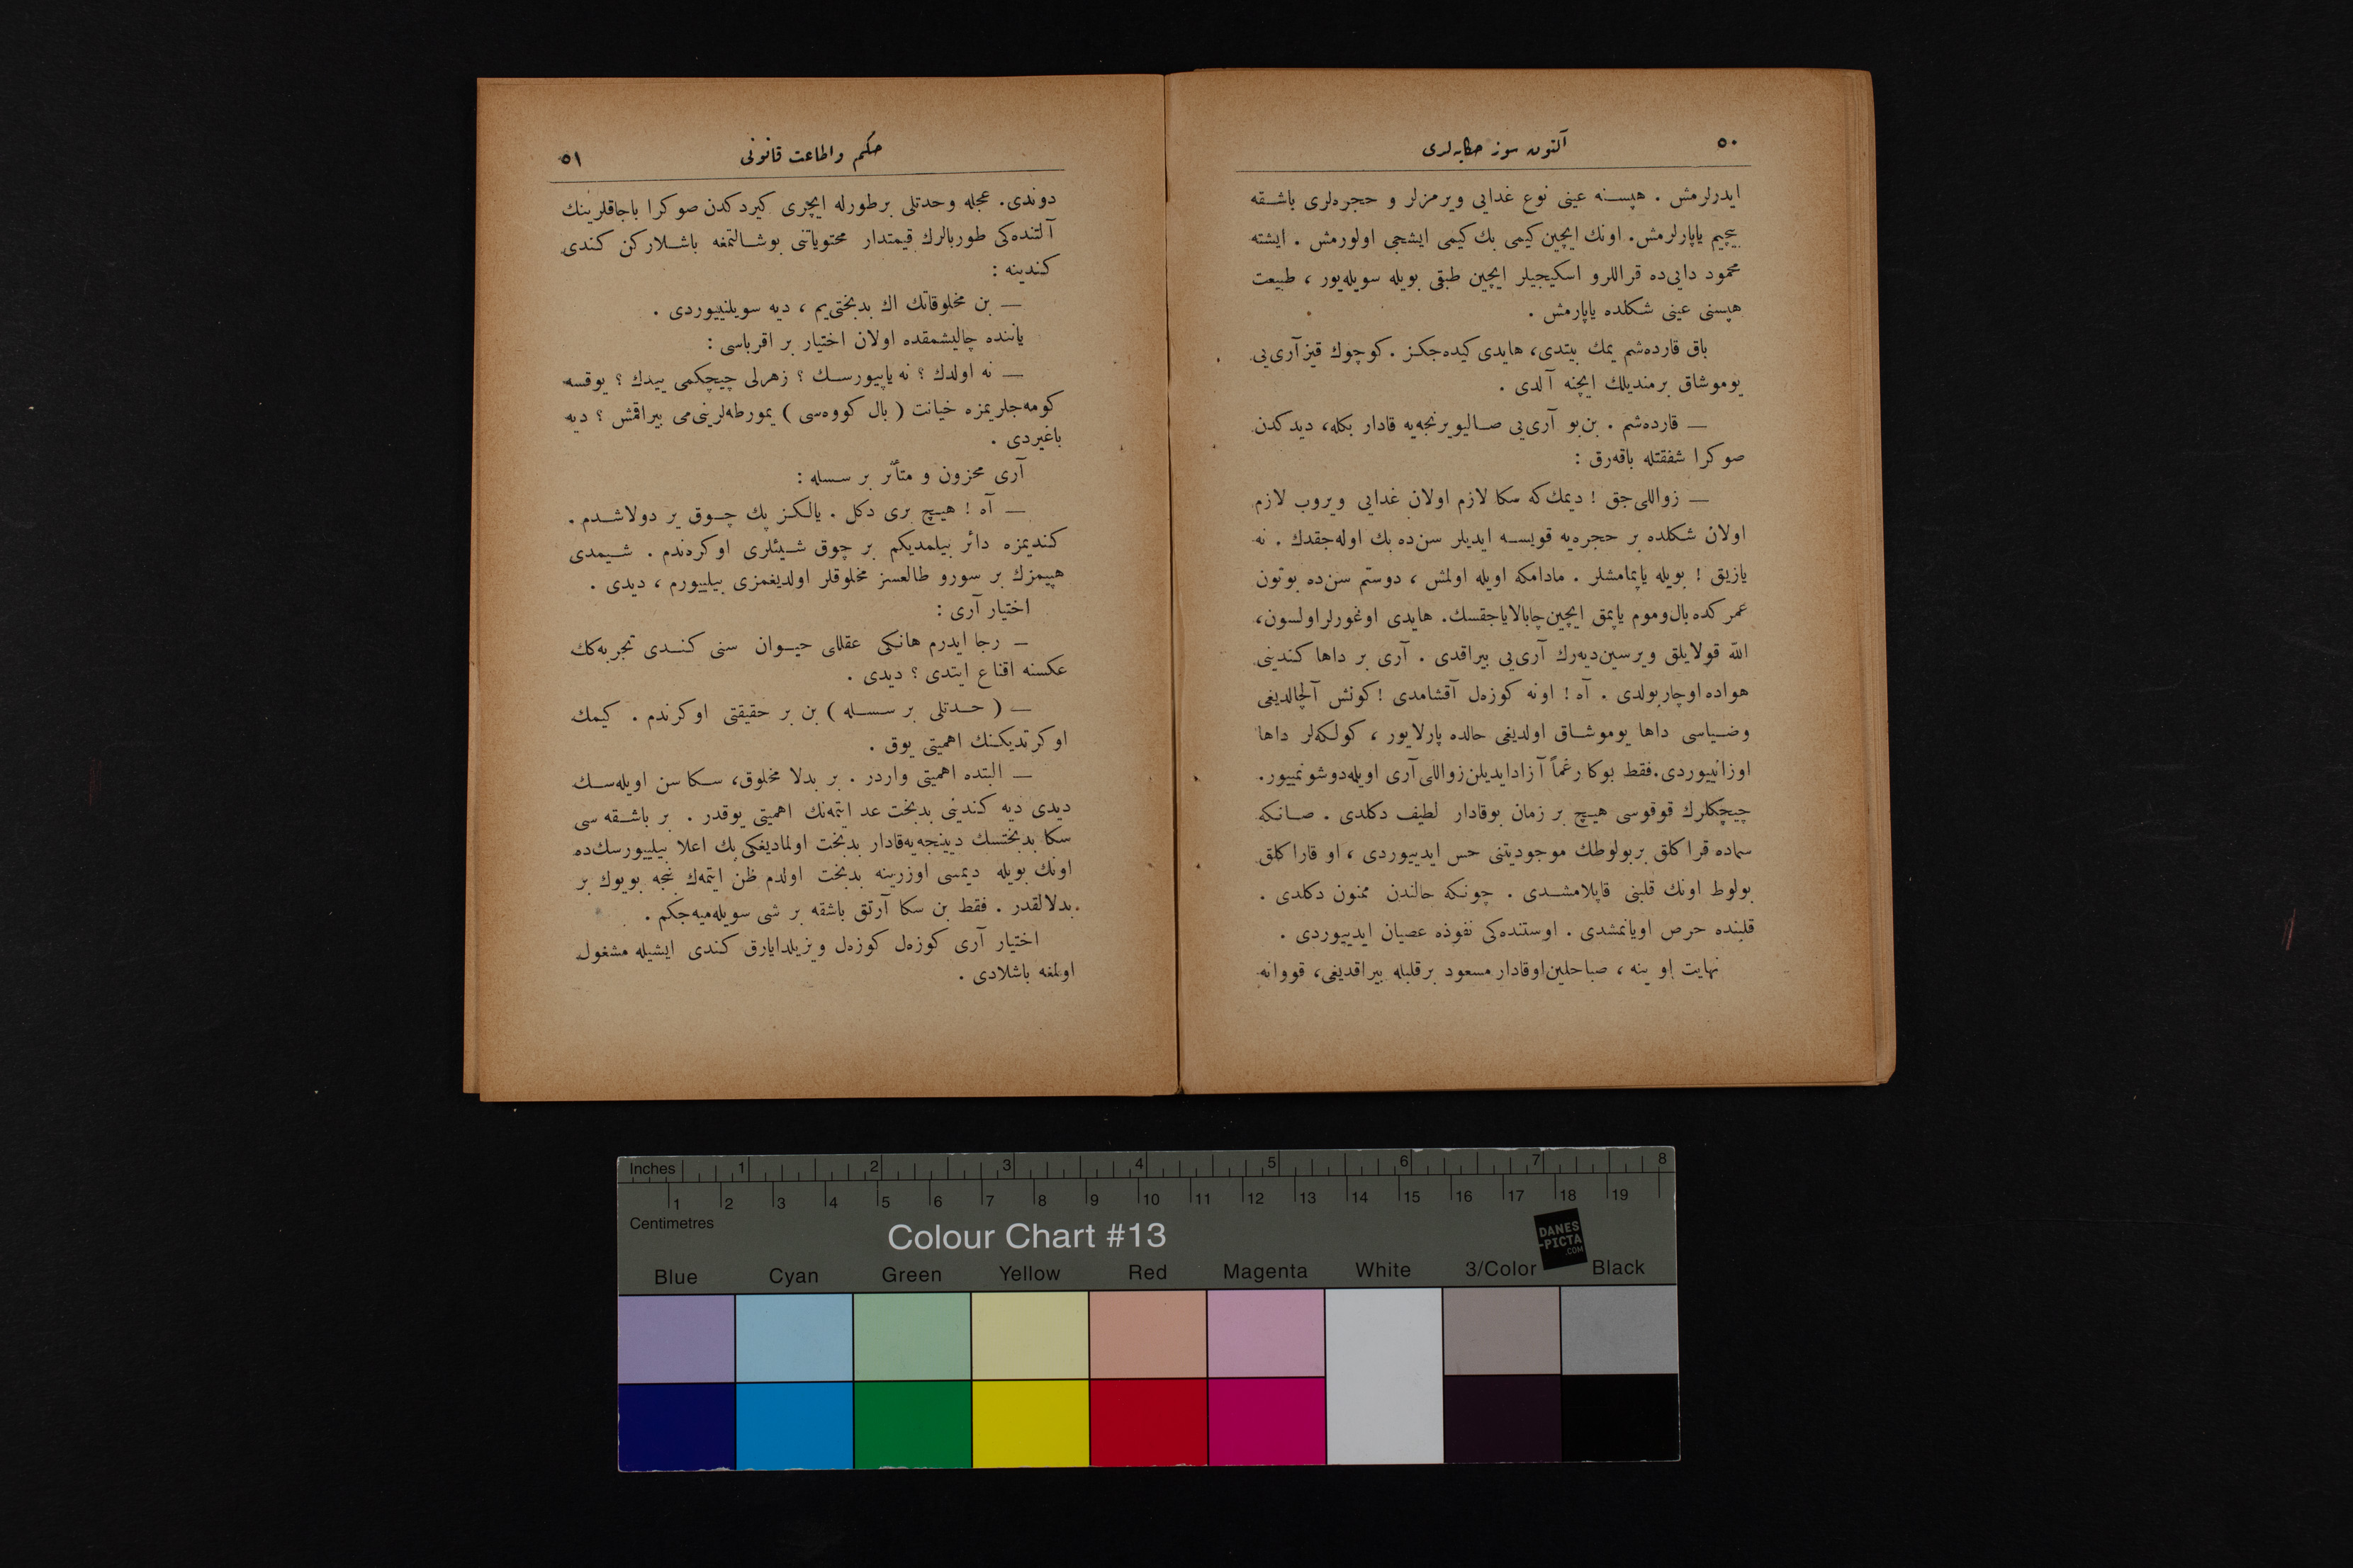 ٥٠
آلتون سوز حكایه‌لری
ایدرلرمش . هپسنه عینی نوع غدایی ویرمزلر و حجره‌لری باشقه
بیچیم یاپارلرمش. اونك ایچین كیمی بك كیمی ایشجی اولورمش . ایشته
محمود دایی‌ده قراللرو اسكیجیلر ایچین طبقی بویله سویله‌یور ، طبیعت
هپسنی عینی شكلده یاپارمش .
باق قارده‌شم یمك بیتدی، هایدی كیده‌جكز . كوچوك قیز آری‌یی
یوموشاق برمندیلك ایچنه آلدی .
— قارده‌شم . بن‌بو آری‌یی صالیویرنجه‌یه قادار بكله، دیدكدن
صوكرا شفقتله باقه‌رق :
— زواللی‌جق ! دیمك‌كه سكا لازم اولان غدایی ویروب لازم
اولان شكلده بر حجره‌یه قویسه ایدیلر سن‌ده بك اوله‌جقدك . نه
یازیق ! بویله یاپمامشلر . مادامكه اویله اولمش ، دوستم سن‌ده بوتون
عمركده بال‌وموم یاپمق ایچین‌چابالایاجقسك. هایدی اوغورلراولسون،
الله قولایلق ویرسین‌دیه‌رك آری‌یی بیراقدی . آری بر داها كندینی
هواده‌اوچاربولدی . آه ! اونه كوزه‌ل آقشامدی ! كونش آلچالدیغی
وضیاسی داها یوموشاق اولدیغی حالده پارلایور ، كولكه‌لر داها
اوزانییوردی.فقط بوكا رغماً آزادایدیلن‌زواللی‌آری اویله‌دوشونمییور.
چیچكلرك قوقوسی هیچ بر زمان بوقادار لطیف دكلدی . صانكه
سماده قراكلق بربولوطك موجودیتنی حس ایدییوردی ، او قاراكلق
بولوط اونك قلبنی قاپلامشدی . چونكه حالندن ممنون دكلدی .
قلبنده حرص اویانمشدی . اوستنده‌كی نفوذه عصیان ایدییوردی .
نهایت او ینه ، صباحلین‌اوقادار مسعود برقلبله بیراقدیغی، قووانه
حكم واطاعت قانونی
٥١
دوندی. عجله وحدتلی برطورله ایچری كیردكدن صوكرا باجاقلرینك
آلتنده‌كی طوربالرك قیمتدار محتویاتنی بوشالتمغه باشلاركن كندی
كندینه :
— بن مخلوقاتك اك بدبختی‌یم ، دیه سویلنییوردی .
یاننده چالیشمقده اولان اختیار بر اقرباسی :
— نه اولدك ؟ نه یاپییورسك ؟ زهرلی چیچكمی ییدك ؟ یوقسه
كومه‌جلریمزه خیانت ( بال كووه‌سی ) یمورطه‌لرینی‌می بیراقمش ؟ دیه
باغیردی .
آری محزون و متأثر بر سسله :
— آه ! هیچ بری دكل . یالكز پك چوق یر دولاشدم .
كندیمزه دائر بیلمدیكم بر چوق شیئلری اوكره‌ندم . شیمدی
هپیمزك بر سورو طالعسز مخلوقلر اولدیغمزی بیلییورم ، دیدی .
اختیار آری :
— رجا ایدرم هانكی عقللی حیوان سنی كندی تجربه‌كك
عكسنه اقناع ایتدی ؟ دیدی .
— ( حدتلی بر سسله ) بن بر حقیقتی اوكرندم . كیمك
اوكرتدیكنك اهمیتی یوق .
— البتده اهمیتی واردر . بر بدلا مخلوق، سكا سن اویله‌سك
دیدی دیه كندینی بدبخت عد ایتمه‌نك اهمیتی یوقدر . بر باشقه سی
سكا بدبختسك دیینجه‌یه‌قادار بدبخت اولمادیغكی پك اعلا بیلییورسك‌ده
اونك بویله دیمسی اوزرینه بدبخت اولدم ظن ایتمه‌ك نجه بویوك بر
بدلالقدر . فقط بن سكا آرتق باشقه بر شی سویله‌میه‌جكم .
اختیار آری كوزه‌ل كوزه‌ل ویزیلدایارق كندی ایشیله مشغول
اولمغه باشلادی .
Inches 1 2 3 4 5 6 7 8
1 2 3 4 5 6 7 8 9 10 11 12 13 14 15 16 17 18 19
Centimetres
Colour Chart #13
DANES
-PICTA
.COM
Blue Cyan Green Yellow Red Magenta White 3/Color Black